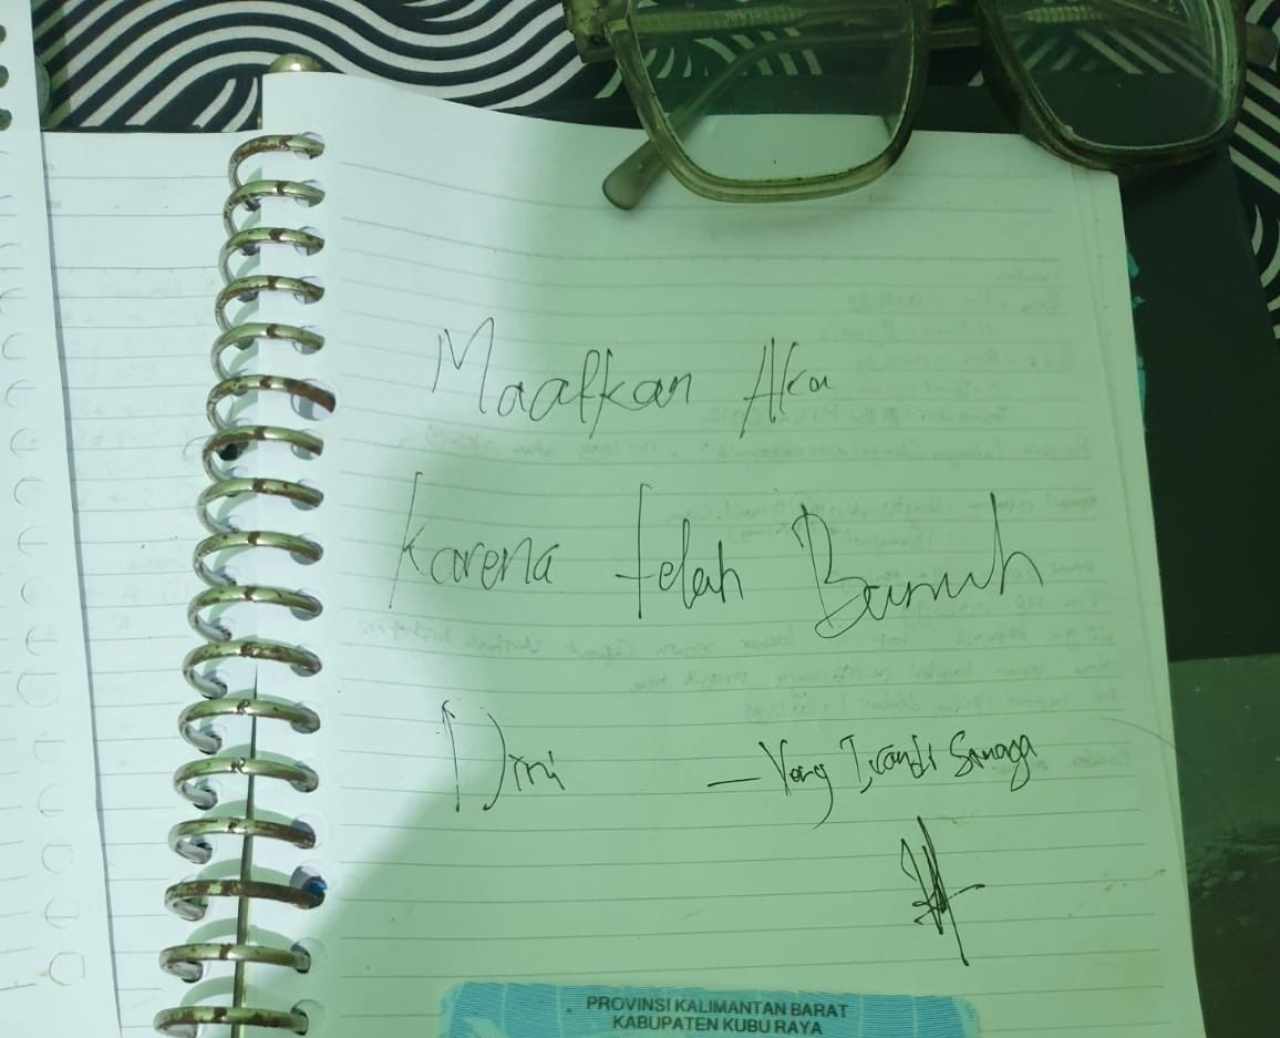 Maafkan Aku
Karena telah Bunuh
Diri
— Yang Irandi Sinaga
PROVINSI KALIMANTAN BARAT
KABUPATEN KUBU RAYA